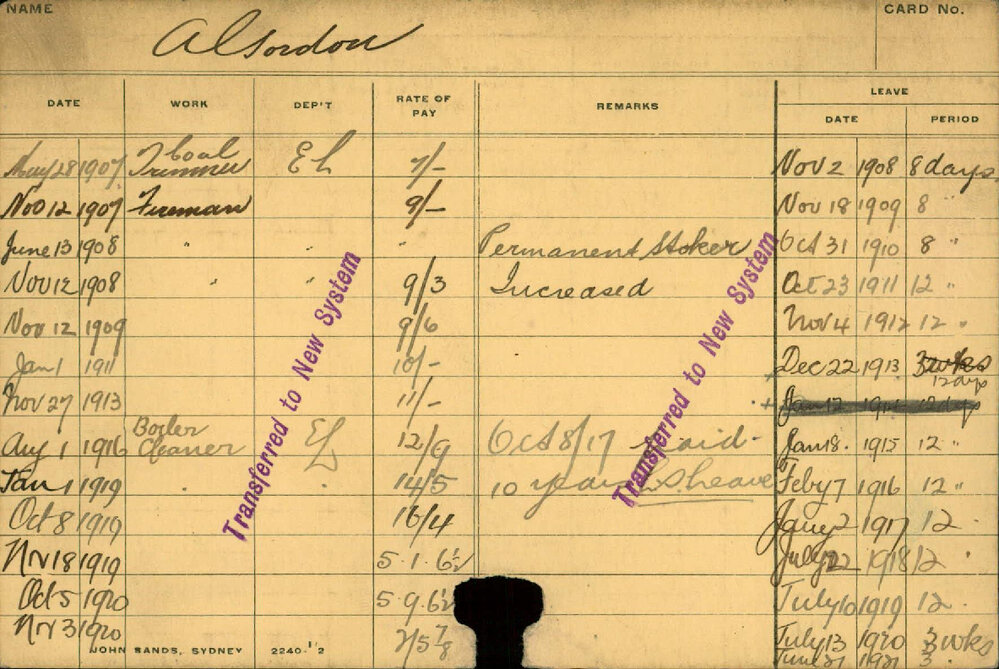 NAME CARD No.
A C Gordon
DATE WORK DEP'T RATE OF PAY REMARKS LEAVE
DATE PERIOD
May 28 1907 Coal Trimmer E L 7/- Nov 2 1908 8 days
Nov 12 1907 Fireman 9/- Nov 18 1909 8 "
June 13 1908 " " " Permanent Stoker Oct 31 1910 8 "
Nov 12 1908 " " 9/3 Increased Oct 23 1911 12 "
Nov 12 1909 9/6 Nov 4 1912 12 "
Jan 1 1911 10/- Dec 22 1913 3 wks 12 days
Nov 27 1913 11/- Jan 12 1914 12 days
Aug 1 1916 Boiler Cleaner EL 12/9 Oct 8/17 paid - Jan 18. 1915 12 "
Jan 1 1919 " 14/5 10 years L.S. leave to Feby 7 1916 12 "
Oct 8 1919 16/4 Jany 2 1917 12 "
Nov 18 1919 5.1.6½ July 22 1918 12 "
Oct 5 1920 5.9.6½ July 10 1919 12 "
Nov 3 1920 July 13 1920 3 wks
June 21 1921 3 "
Transferred to New System
Transferred to New System
JOHN SANDS, SYDNEY 2240-1'2